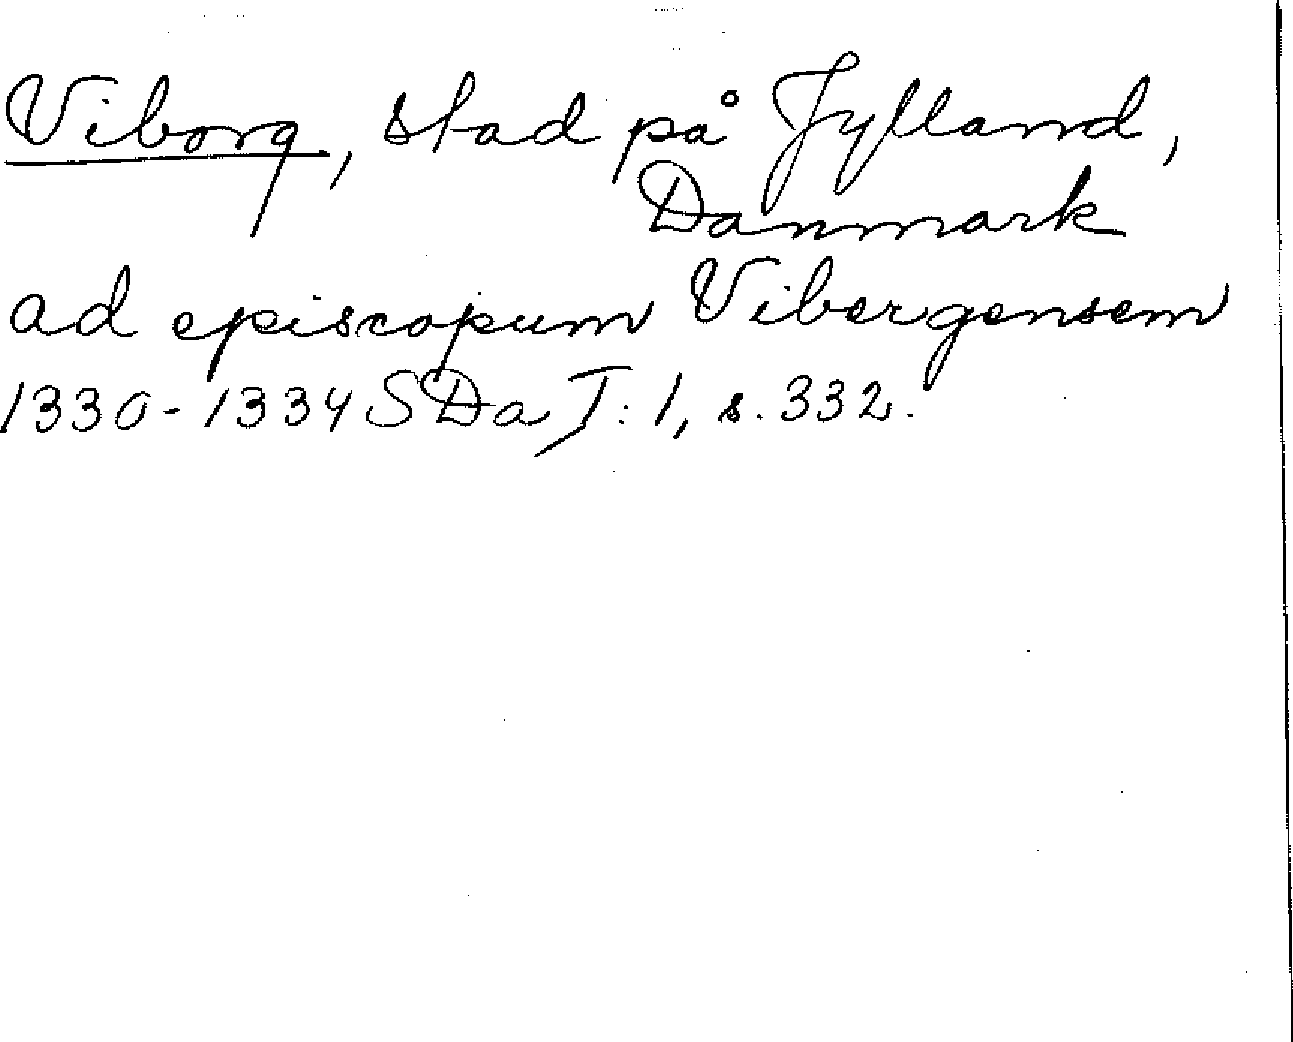 Viborg, stad på Jylland,
Danmark
ad episcopum Vibergensem
1330-1334 SDa J: 1, s. 332.